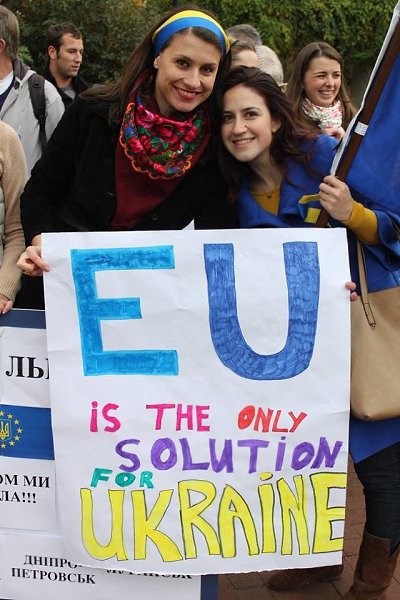 EU
iS THE ONLY
SOLUTiON
FOR
UKRAiNE
ДНІПРО
ПЕТРОВСЬК